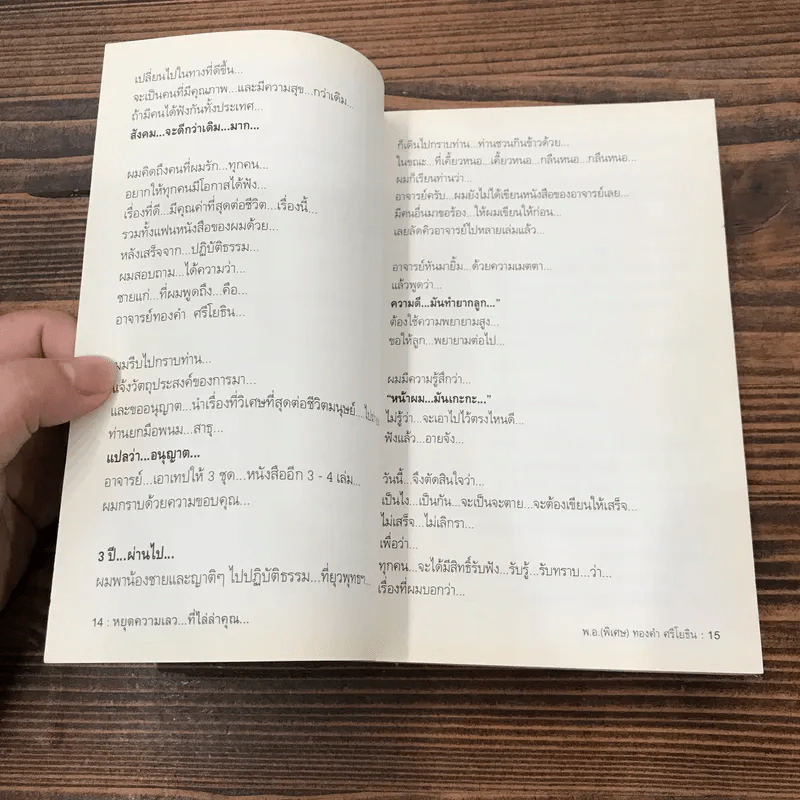 เปลี่ยนไปในทางที่ดีขึ้น...
จะเป็นคนที่มีคุณภาพ...และมีความสุข...กว่าเดิม...
ถ้ามีคนได้ฟังกันทั้งประเทศ...
สังคม...จะดีกว่าเดิม...มาก...
ผมคิดถึงคนที่ผมรัก...ทุกคน...
อยากให้ทุกคนมีโอกาสได้ฟัง...
เรื่องที่ดี...มีคุณค่าที่สุดต่อชีวิต...เรื่องนี้...
รวมทั้งแฟนหนังสือของผมด้วย...
หลังเสร็จจาก...ปฏิบัติธรรม...
ผมสอบถาม...ได้ความว่า...
ชายแก่...ที่ผมพูดถึง...คือ...
อาจารย์ทองคำ ศรีโยธิน...
ผมรีบไปกราบท่าน...
แจ้งวัตถุประสงค์ของการมา...
และขออนุญาต...นำเรื่องที่วิเศษที่สุดต่อชีวิตมนุษย์...
ท่านยกมือพนม...สาธุ...
แปลว่า...อนุญาต...
อาจารย์...เอาเทปให้ 3 ชุด...หนังสืออีก 3 - 4 เล่ม...
ผมกราบด้วยความขอบคุณ...
3 ปี...ผ่านไป...
ผมพาน้องชายและญาติๆ ไปปฏิบัติธรรม...ที่ยุวพุทธฯ...
14 : หยุดความเลว...ที่ไล่ล่าคุณ...
ก็เดินไปกราบท่าน...ท่านชวนกินข้าวด้วย...
ในขณะ...ที่เคี้ยวหนอ...เคี้ยวหนอ...กลืนหนอ...กลืนหนอ...
ผมก็เรียนท่านว่า...
อาจารย์ครับ...ผมยังไม่ได้เขียนหนังสือของอาจารย์เลย...
มีคนอื่นมาขอร้อง...ให้ผมเขียนให้ก่อน...
เลยลัดคิวอาจารย์ไปหลายเล่มแล้ว...
อาจารย์หันมายิ้ม...ด้วยความเมตตา...
แล้วพูดว่า...
ความดี...มันทำยากลูก..."
ต้องใช้ความพยายามสูง...
ขอให้ลูก...พยายามต่อไป...
ผมมีความรู้สึกว่า...
"หน้าผม...มันเกะกะ..."
ไม่รู้ว่า...จะเอาไปไว้ตรงไหนดี...
ฟังแล้ว...อายจัง...
วันนี้...จึงตัดสินใจว่า...
เป็นไง...เป็นกัน...จะเป็นจะตาย...จะต้องเขียนให้เสร็จ...
ไม่เสร็จ...ไม่เลิกรา...
เพื่อว่า...
ทุกคน...จะได้มีสิทธิ์รับฟัง...รับรู้...รับทราบ...ว่า...
เรื่องที่ผมบอกว่า...
พ.อ.(พิเศษ) ทองคำ ศรีโยธิน : 15